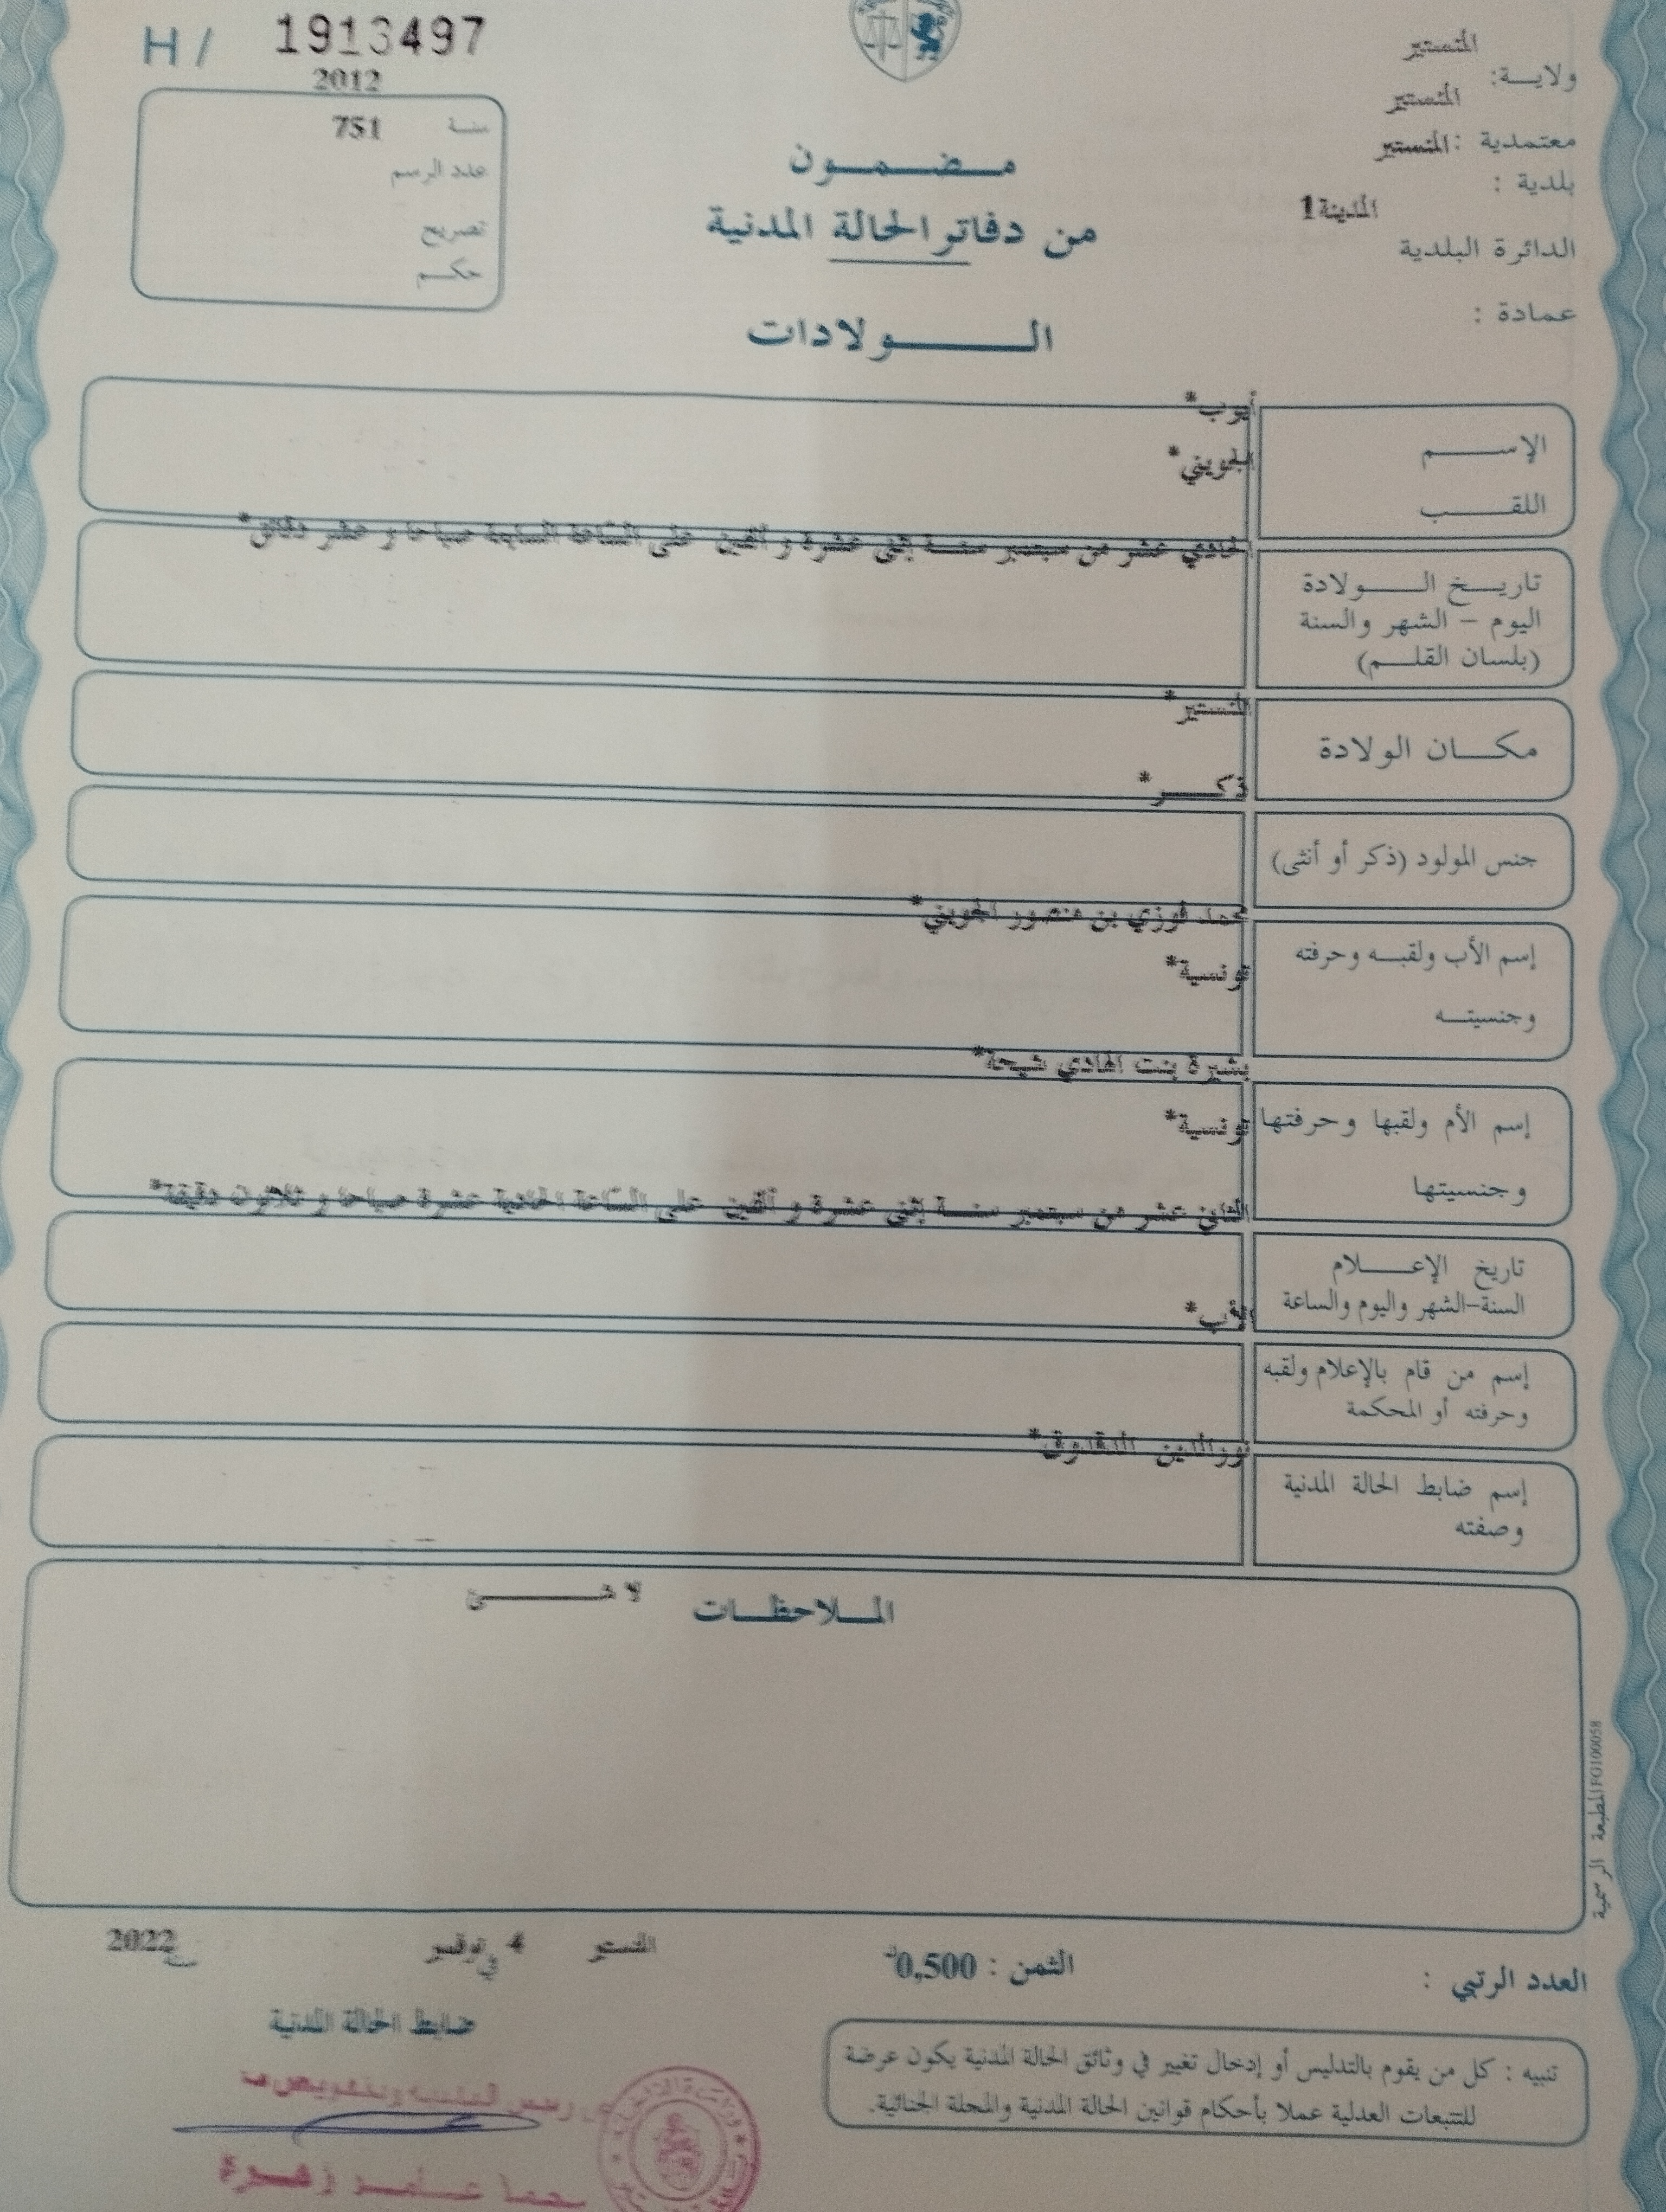 H / 1913497
2012
سنة 751
عدد الرسم
تصريح
حكم
المنستير
ولاية:
المنستير
معتمدية : المنستير
بلدية :
المدينة1
الدائرة البلدية
عمادة :
مضمون
من دفاتر الحالة المدنية
الولادات
أيوب*
الإسم
الجويني*
اللقب
الحادي عشر من سبتمبر سنة إثنى عشرة و ألفين على الساعة السابعة صباحا و عشر دقائق*
تاريخ الولادة
اليوم – الشهر والسنة
(بلسان القلم)
المنستير*
مكان الولادة
ذكر*
جنس المولود (ذكر أو أنثى)
محمد فوزي بن منصور الجويني*
إسم الأب ولقبه وحرفته
تونسية*
وجنسيته
بشيرة بنت الهادي شيحة*
إسم الأم ولقبها وحرفتها
تونسية*
وجنسيتها
الثاني عشر من سبتمبر سنة إثنى عشرة و ألفين على الساعة الحادية عشرة صباحا و ثلاثون دقيقة*
تاريخ الإعلام
السنة–الشهر واليوم والساعة
الأب*
إسم من قام بالإعلام ولقبه
وحرفته أو المحكمة
نورالدين الدقدوق*
إسم ضابط الحالة المدنية
وصفته
الملاحظات
لا شئ
المطبعة الرسمية FO100058
العدد الرتبي :
الثمن : 0,500د
المنستير في 4 نوفمبر سنة 2022
ضابط الحالة المدنية
تنبيه : كل من يقوم بالتدليس أو إدخال تغيير في وثائق الحالة المدنية يكون عرضة
للتتبعات العدلية عملا بأحكام قوانين الحالة المدنية والمجلة الجنائية.
عن رئيس البلدية وبتفويض منه